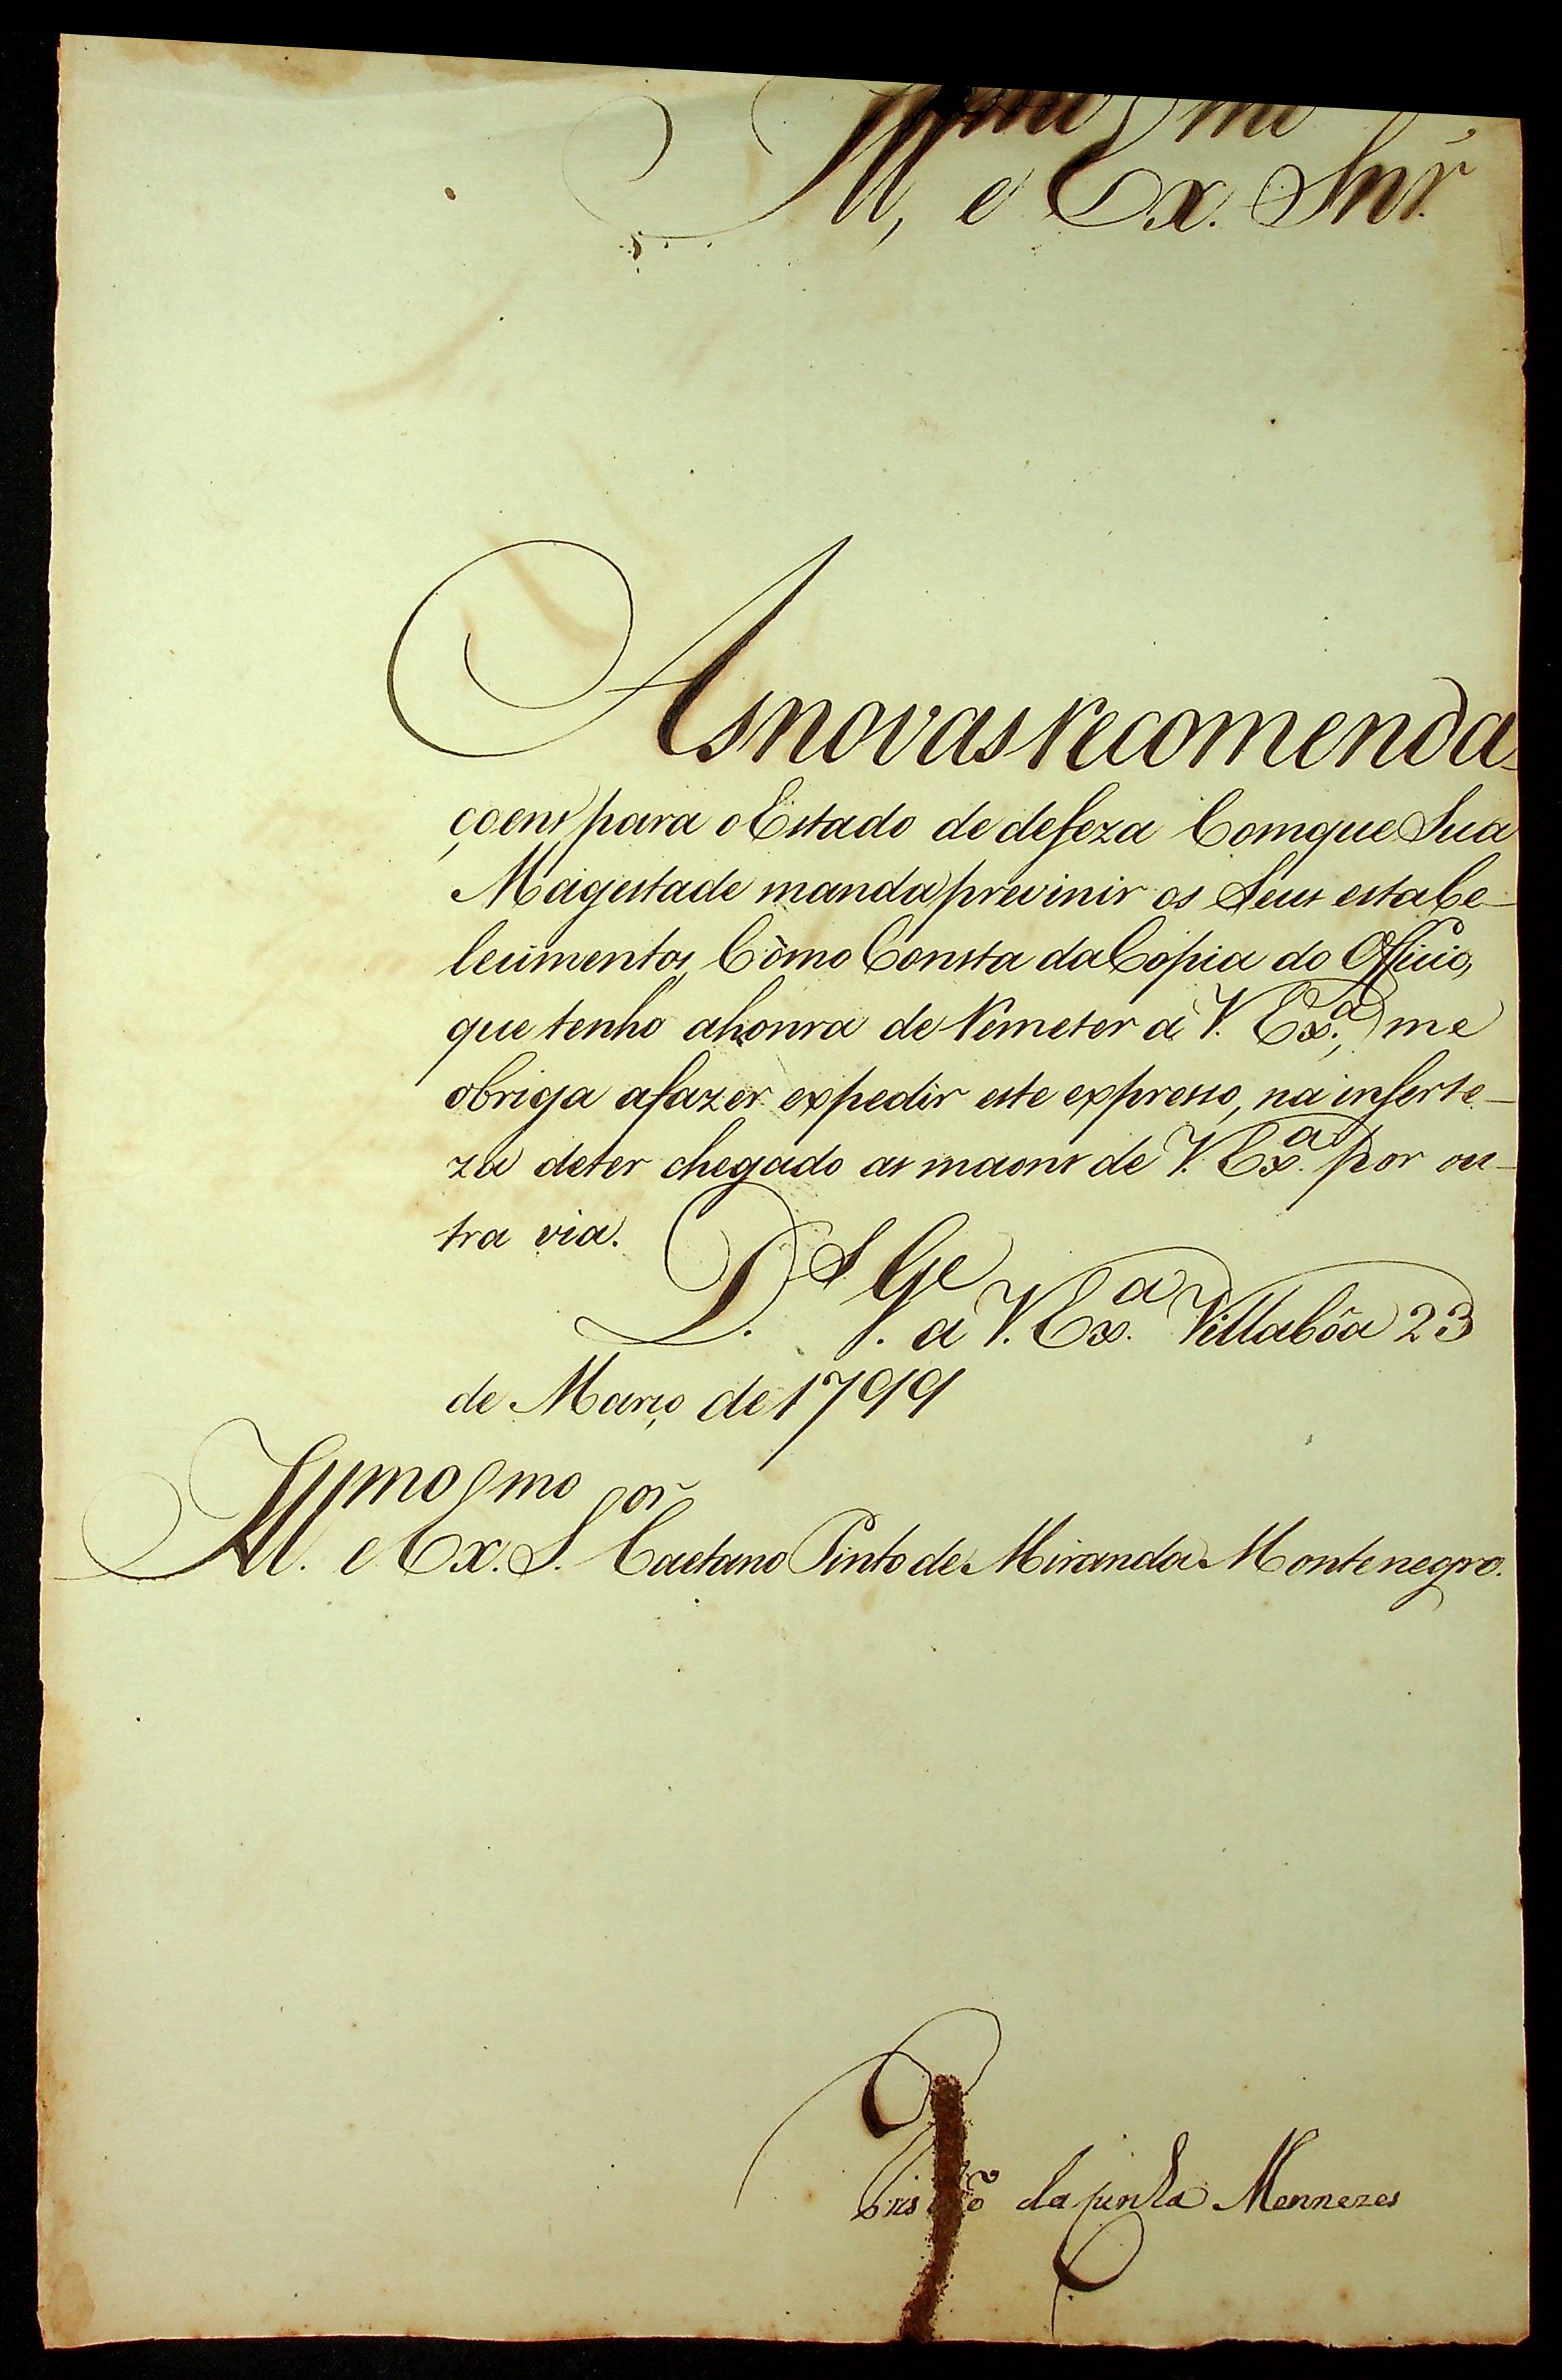 Ill.mo, e Ex.mo Snr.
As novas recomenda-
çoens para o Estado de defeza Com que Sua
Magestade manda previnir os Seus estabe-
lecimentos, Como Consta da Copia do Officio,
que tenho a honra de Remeter a V. Ex.a, me
obriga a fazer expedir este expresso, na inserte-
za de ter chegado as maons de V. Ex.a por ou-
tra via.
D.s G.e a V. Ex.a Villabôa 23
de Março de 1799
Ill.mo e Ex.mo S.or Caetano Pinto de Miranda Montenegro.
da Cunha Mennezes